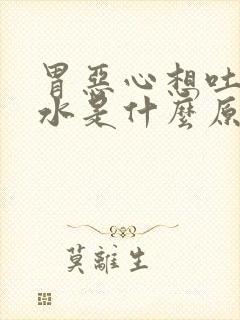 胃惡心想吐
水是什麼原
莫離生